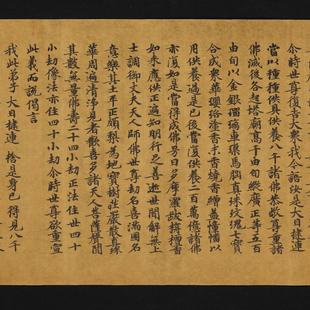 尒時世尊復告大衆我今語汝是大目揵連
當以種種供具供養八千諸佛恭敬尊重諸
佛滅後各起塔廟高千由旬縱廣正等五百
由旬以金銀瑠璃車𤦲馬瑙真珠玫瑰七寶
合成衆華瓔珞塗香末香燒香繒蓋幢幡以
用供養過是已後當復供養二百萬億諸佛
亦復如是當得成佛号曰多摩羅跋栴檀香
如來應供正遍知明行足善逝世間解無上
士調御丈夫天人師佛世尊劫名喜滿國名
意樂其土平正頗梨為地寶樹莊嚴散真珠
華周遍清淨見者歡喜多諸天人菩薩聲聞
其數無量佛壽二十四小劫正法住世四十
小劫像法亦住四十小劫尒時世尊欲重宣
此義而說偈言
我此弟子 大目揵連 捨是身已 得見八千